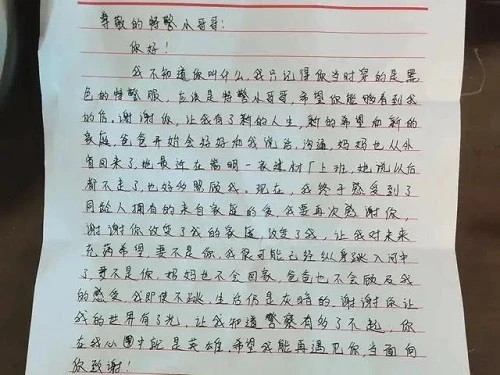 尊敬的特警小哥哥:
你好!
我不知道你叫什么,我只记得你当时穿的是黑
色的特警服,应该是特警小哥哥,希望你能够看到我
的信。谢谢你,让我有了新的人生,新的希望和新的
家庭,爸爸开始会好好和我说话,沟通,妈妈也从外
省回来了,她最近在嵩明一家建材厂上班,她说以后
都不走了,也好好照顾我。现在,我终于感受到了
同龄人拥有的来自家庭的爱,我要再次感谢你,
谢谢你改变了我的家庭,改变了我,让我对未来
充满希望,要不是你,我很可能已经纵身跳入河中
了,要不是你,妈妈也不会回家,爸爸也不会顾及我
的感受,我即使不跳,生活仍是灰暗的,谢谢你让
我的世界有了光,让我知道警察有多了不起,你
在我心中就是英雄,希望我能再遇见你,当面向
你致谢!